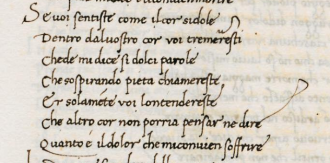 Se voi sentiste come il cor si dole
Dentro dal vostro cor voi tremeresti
Chede mi dice si dolci parole
Che sospirando pieta chiamereste
Et solaméte voi lontendereste
Che altro cor non porria pensar ne dire
Quanto è il dolor che mi convien soffrire